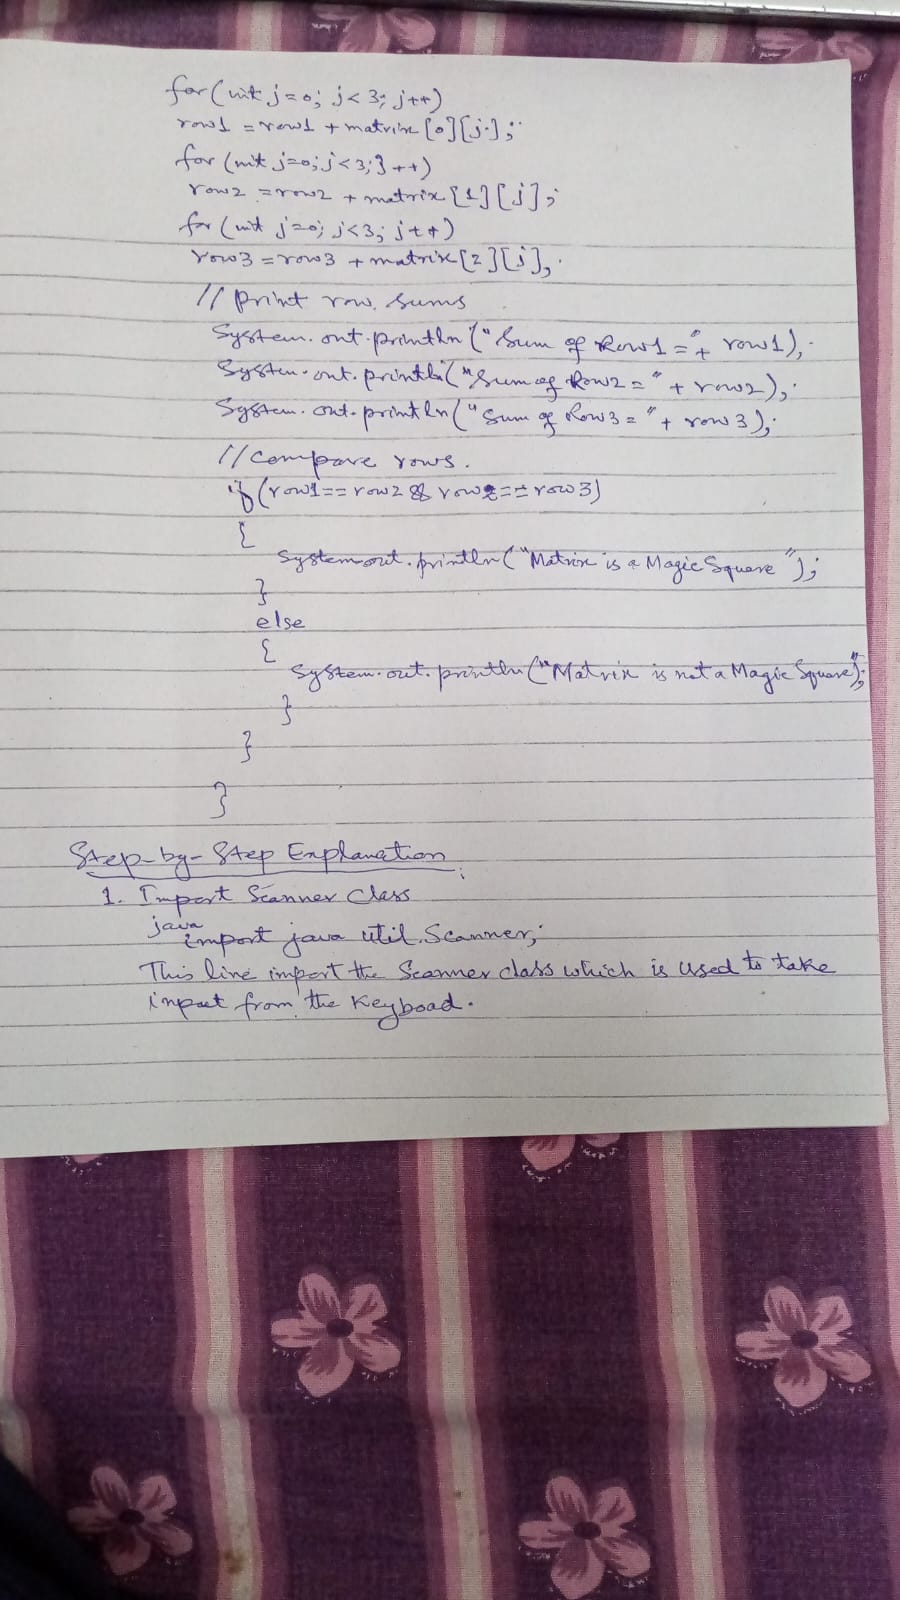 for(int j=0; j<3; j++)
row1 = row1 + matrix[0][j];
for(int j=0; j<3; j++)
row2 = row2 + matrix[1][j];
for(int j=0; j<3; j++)
row3 = row3 + matrix[2][j];
// Print row sums
System.out.println("Sum of Row1 =" + row1);
System.out.println("Sum of Row2 = " + row2);
System.out.println("Sum of Row3 = " + row3);
// Compare rows.
if(row1==row2 && row2==row3)
{
System.out.println("Matrix is a Magic Square");
}
else
{
System.out.println("Matrix is not a Magic Square");
}
}
}
Step-by-Step Explanation:
1. Import Scanner Class
java
import java util.Scanner;
This line import the Scanner class which is used to take
input from the Keyboad.